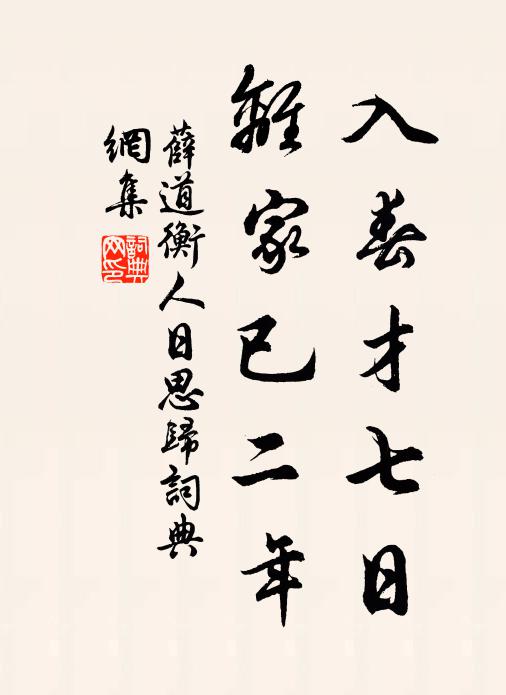 入春才七日
離家已二年
薛道衡人日思歸詞典
網集
詞典
网印